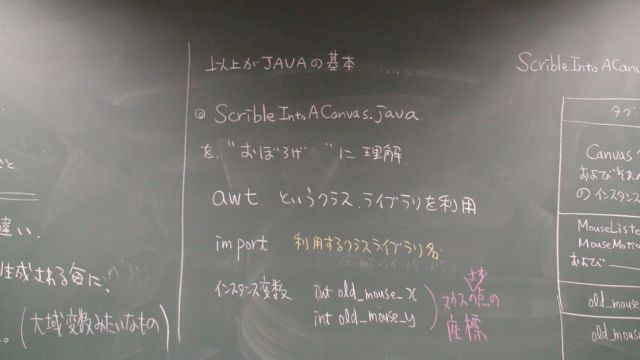 違い.
生成される毎に、
(大域変数みたいなもの)
以上がJAVAの基本
◎ ScribleIntoACanvas.java
を "おぼろげ…"に理解.
awt というクラス.ライブラリを利用
import 利用するクラスライブラリ名
インスタンス変数 int old_mouse_x
int old_mouse_y
マウスの点の
座標
ScribleIntoACan
タグ
Canvas
および
のインスタンス
MouseListe
MouseMotio
および
old_mous
old_mous